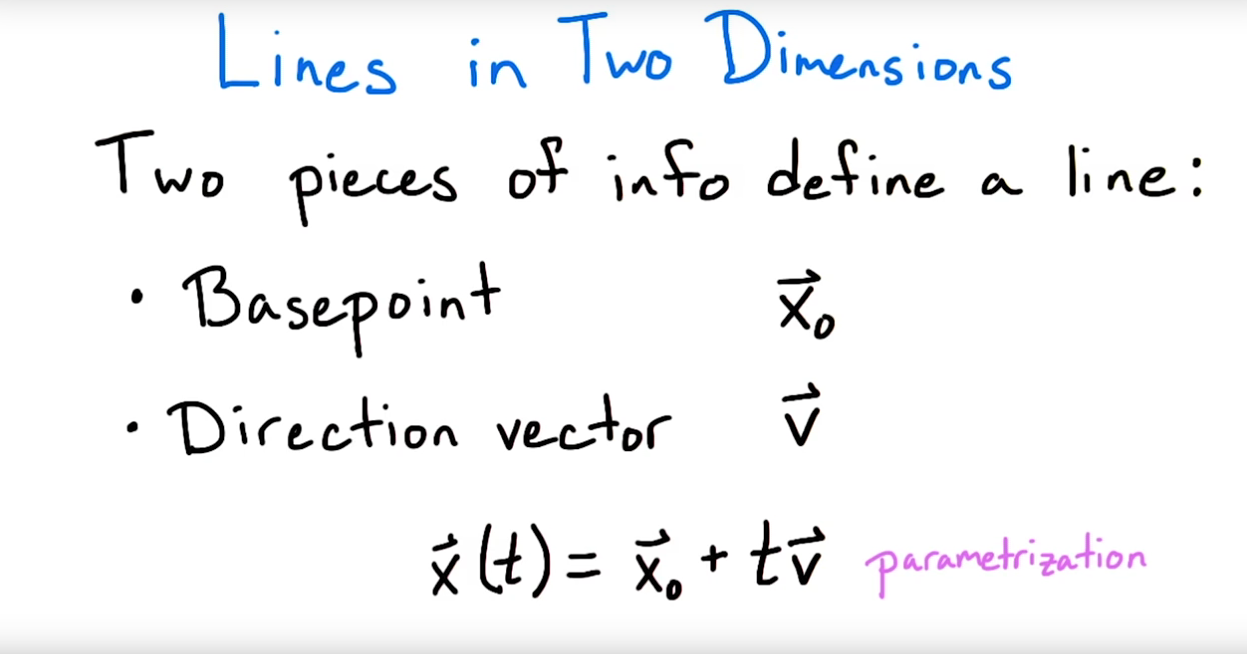 Lines in Two Dimensions
Two pieces of info define a line:
• Basepoint x⃗₀
• Direction vector v⃗
x⃗(t) = x⃗₀ + tv⃗ parametrization